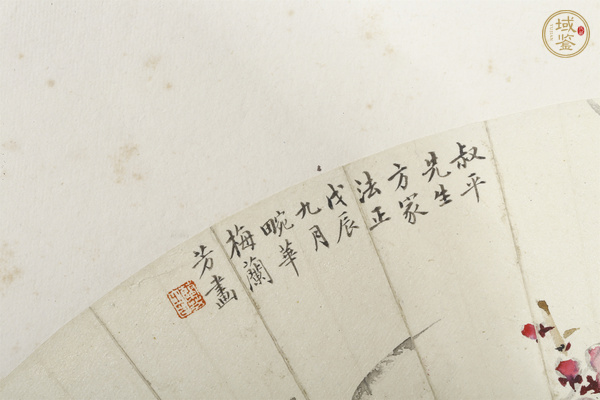 叔平
先生
方家
法正
戊辰
九月
畹華
梅蘭
芳畫
域鉴